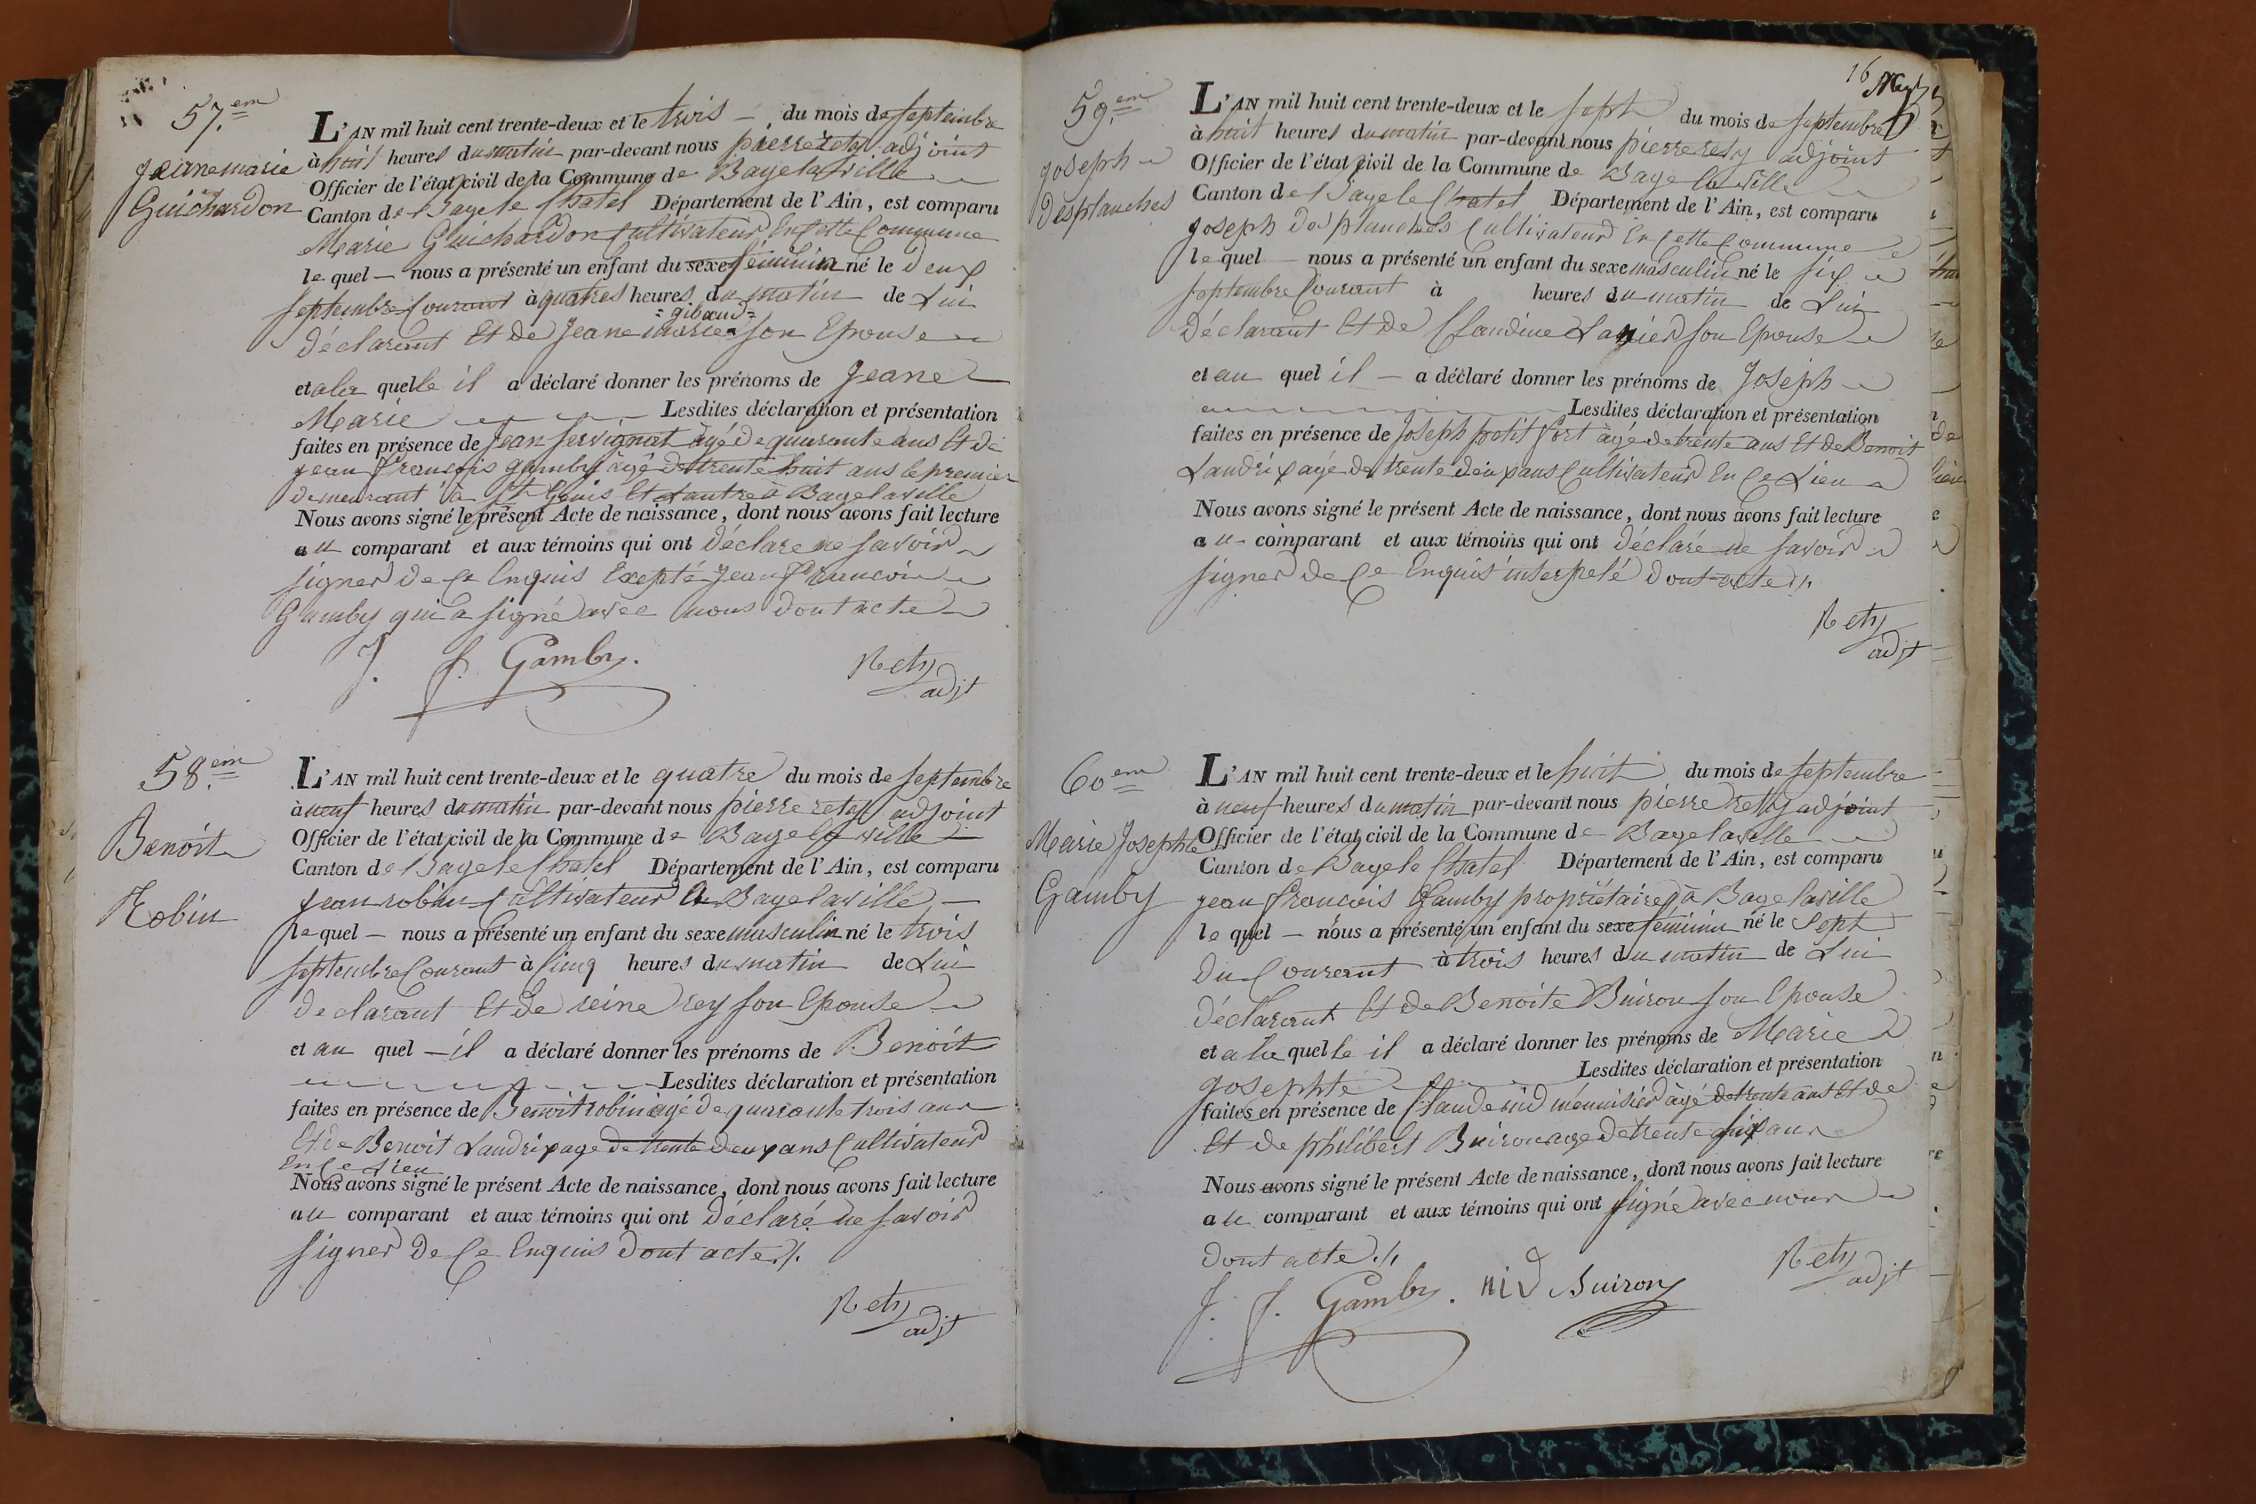 57.em
Jeane marie
Guichardon
L'AN mil huit cent trente-deux et le trois du mois de septembre
à huit heures du matin par-devant nous pierre rety adjoint
Officier de l'état civil de la Commune de Bagelaville
Canton de Bage le Chatel Département de l'Ain, est comparu
Marie Guichardon Cultivateur En Cette Commune
le quel — nous a présenté un enfant du sexe féminin né le deux
septembre Courant à quatres heures du matin de Lui
= giboud =
déclarant Et de Jeane marie son Epouse
et a la quelle il a déclaré donner les prénoms de Jeane
Marie Lesdites déclaration et présentation
faites en présence de Jean servignat àgé de quarante ans Et de
jean francois gamby àgé de trente huit ans le premier
demeurant à St. Genis Et Lautre à Bagelaville
Nous avons signé le présent Acte de naissance, dont nous avons fait lecture
au comparant et aux témoins qui ont déclare ne savoir
signer de Ce Enquis Excepté Jean francois
Gamby qui a signé avec nous dont acte
J. f. Gamby.
Rety
adjt
58.em
Benoit
Robin
L'AN mil huit cent trente-deux et le quatre du mois de septembre
à neuf heures du matin par-devant nous pierre rety adjoint
Officier de l'état civil de la Commune de Bage la ville
Canton de Bage le Chatel Département de l'Ain, est comparu
jean robin Cultivateur A Bagelaville
le quel — nous a présenté un enfant du sexe masculin né le trois
septembre Courant à Cinq heures du matin de Lui
declarant Et de reine rey son Epouse
et au quel — il a déclaré donner les prénoms de Benoit
Lesdites déclaration et présentation
faites en présence de Benoit robin àgé de quarante trois ans
Et de Benoit Landrix age de trente deux ans Cultivateur
En Ce Lieu
Nous avons signé le présent Acte de naissance, dont nous avons fait lecture
au comparant et aux témoins qui ont déclaré ne savoir
signer de Ce Enquis dont acte ./.
Rety
adjt
16
59.em
joseph
Desplanches
L'AN mil huit cent trente-deux et le sept du mois de septembre
à huit heures du matin par-devant nous pierre rety adjoint
Officier de l'état civil de la Commune de Bage la ville
Canton de Bage le Chatel Département de l'Ain, est comparu
joseph desplanches Cultivateur En Cette Commune
le quel — nous a présenté un enfant du sexe masculin né le six
septembre Courant à heures du matin de Lui
déclarant Et de Claudine son Epouse
et au quel il — a déclaré donner les prénoms de Joseph
Lesdites déclaration et présentation
faites en présence de Joseph petit fort àgé de trente ans Et de Benoit
Landrix agé de trente deux ans Cultivateur En Ce Lieu
Nous avons signé le présent Acte de naissance, dont nous avons fait lecture
au comparant et aux témoins qui ont déclaré ne savoir
signer de Ce Enquis interpelé dont acte ./.
Rety
adjt
60em
Marie Josephte
Gamby
L'AN mil huit cent trente-deux et le huit du mois de septembre
à neuf heures du matin par-devant nous pierre rety adjoint
Officier de l'état civil de la Commune de Bagelaville
Canton de Bage le Chatel Département de l'Ain, est comparu
jean francois Gamby propriétaire à Bage laville
le quel — nous a présenté un enfant du sexe féminin né le Sept
du Courant à trois heures du matin de Lui
déclarant Et de Benoite Buiron son Epouse
et a la quelle il a déclaré donner les prénoms de Marie
Josephte Lesdites déclaration et présentation
faites en présence de Claude nid menuisier àgé de trente ans Et de
Et de philibert Buiron age de trente six ans
Nous avons signé le présent Acte de naissance, dont nous avons fait lecture
au comparant et aux témoins qui ont signé avec nous
dont acte ./.
J. f. Gamby. nid Buiron
Rety
adjt